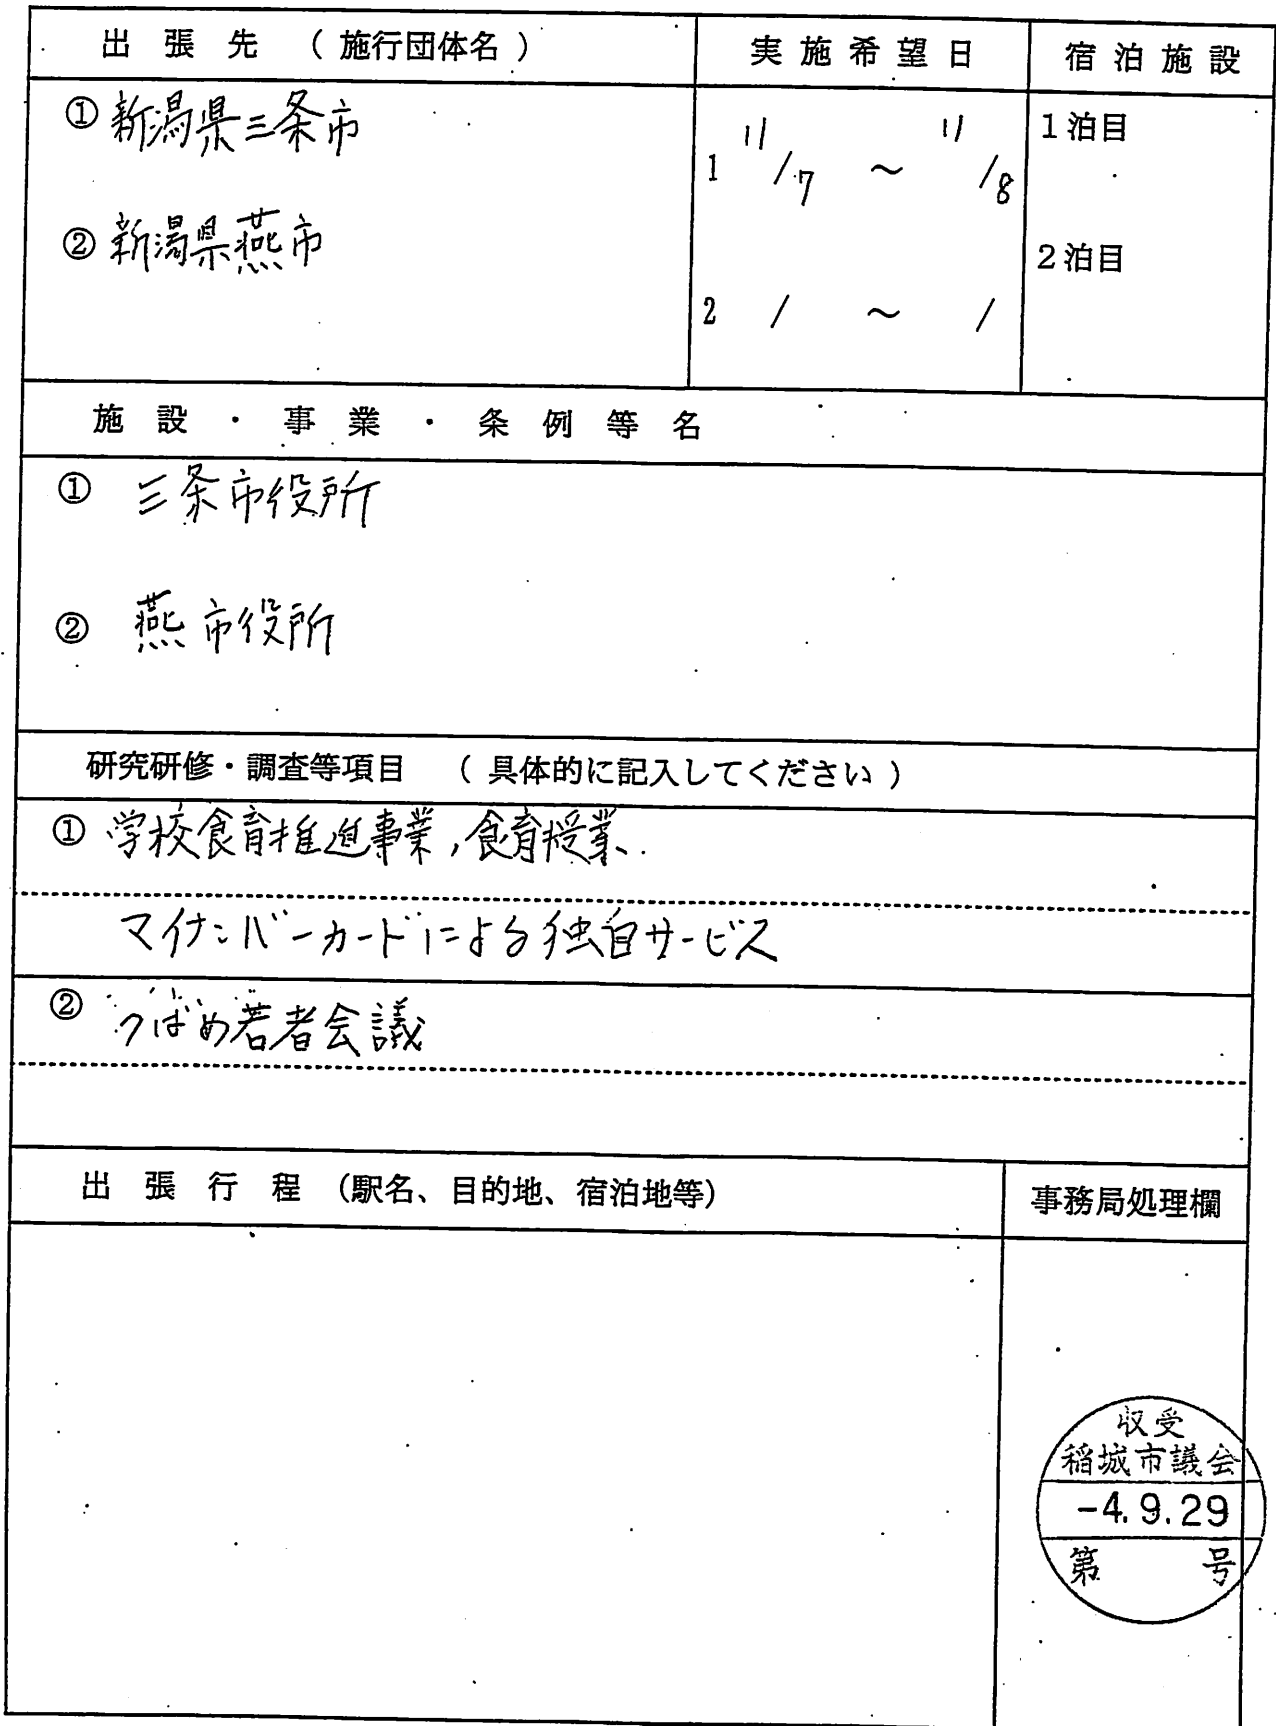 出張先（施行団体名） 実施希望日 宿泊施設
①新潟県三条市 1 11/7 ～ 11/8 1泊目
②新潟県燕市 2泊目
2 / ～ /
施設・事業・条例等名
① 三条市役所
② 燕市役所
研究研修・調査等項目 （具体的に記入してください）
① 学校食育推進事業，食育授業、
マイナンバーカードによる独自サービス
② つばめ若者会議
出張行程（駅名、目的地、宿泊地等） 事務局処理欄
収受
稲城市議会
-4.9.29
第 号